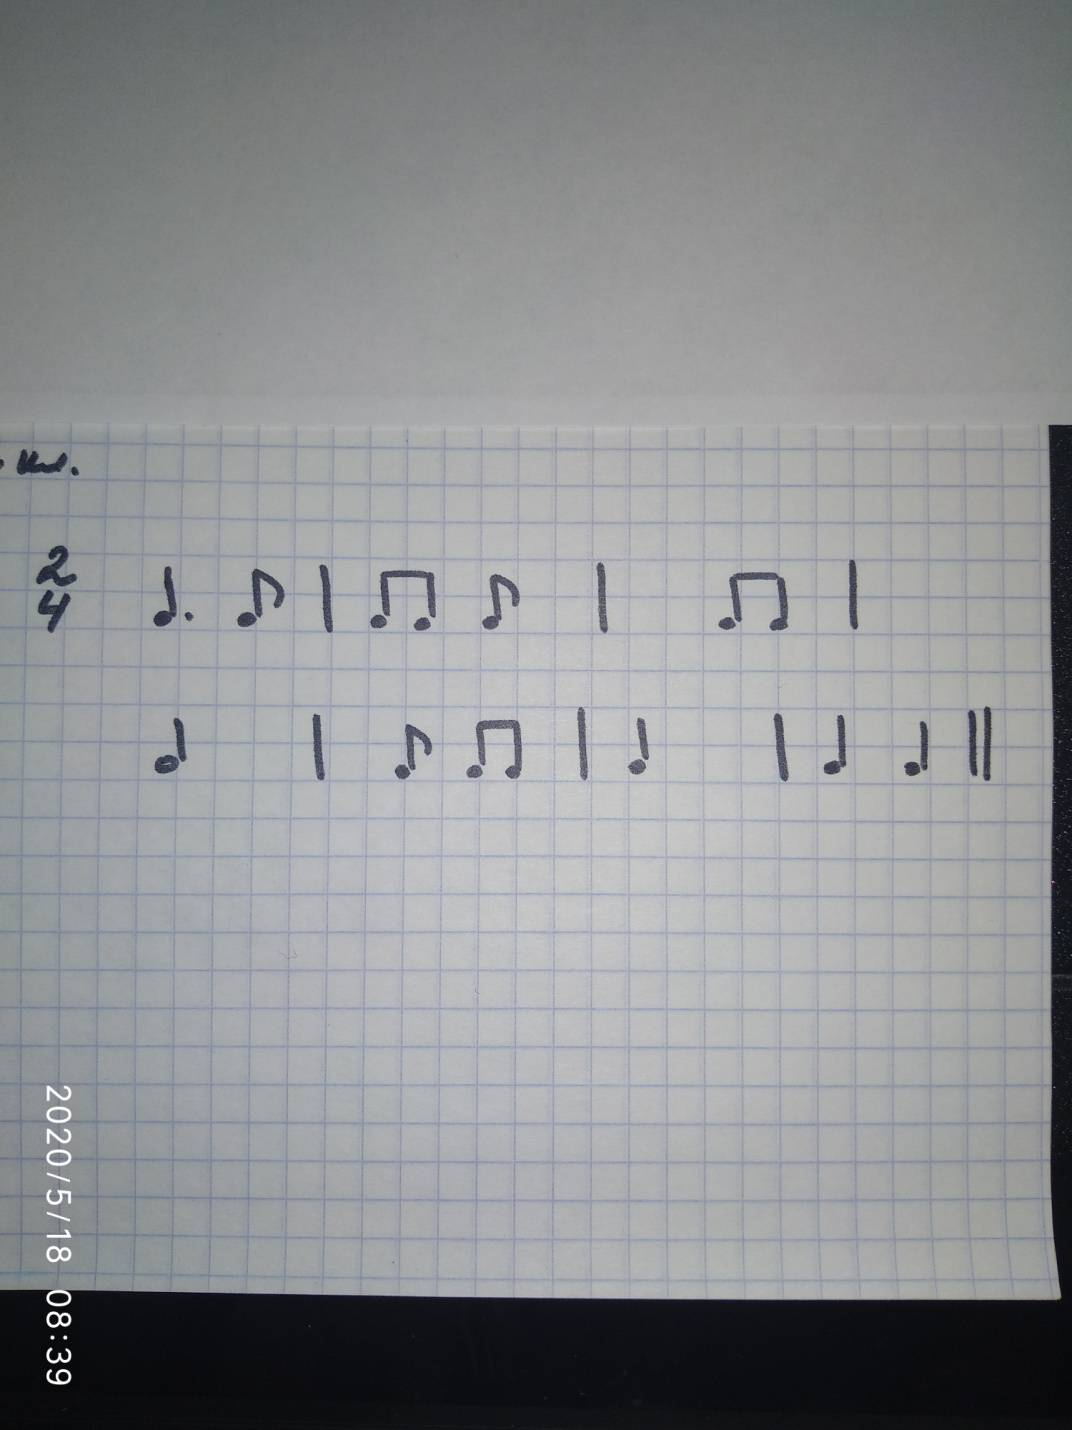 2
4
2020/5/18 08:39